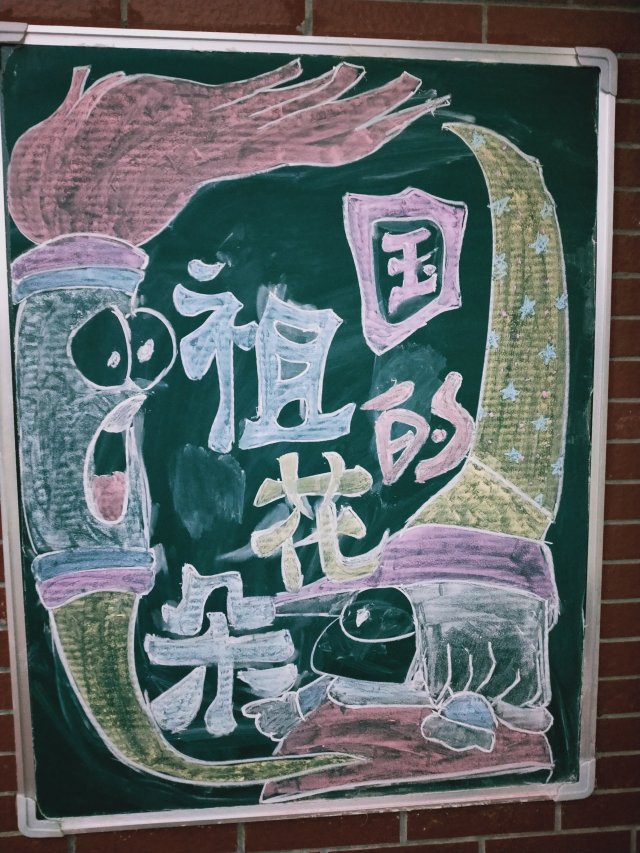 祖国的花朵